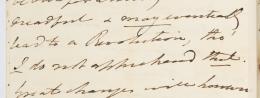 dreadful & may eventually
lead to a Revolution, tho'
I do not apprehend that.
great changes will however